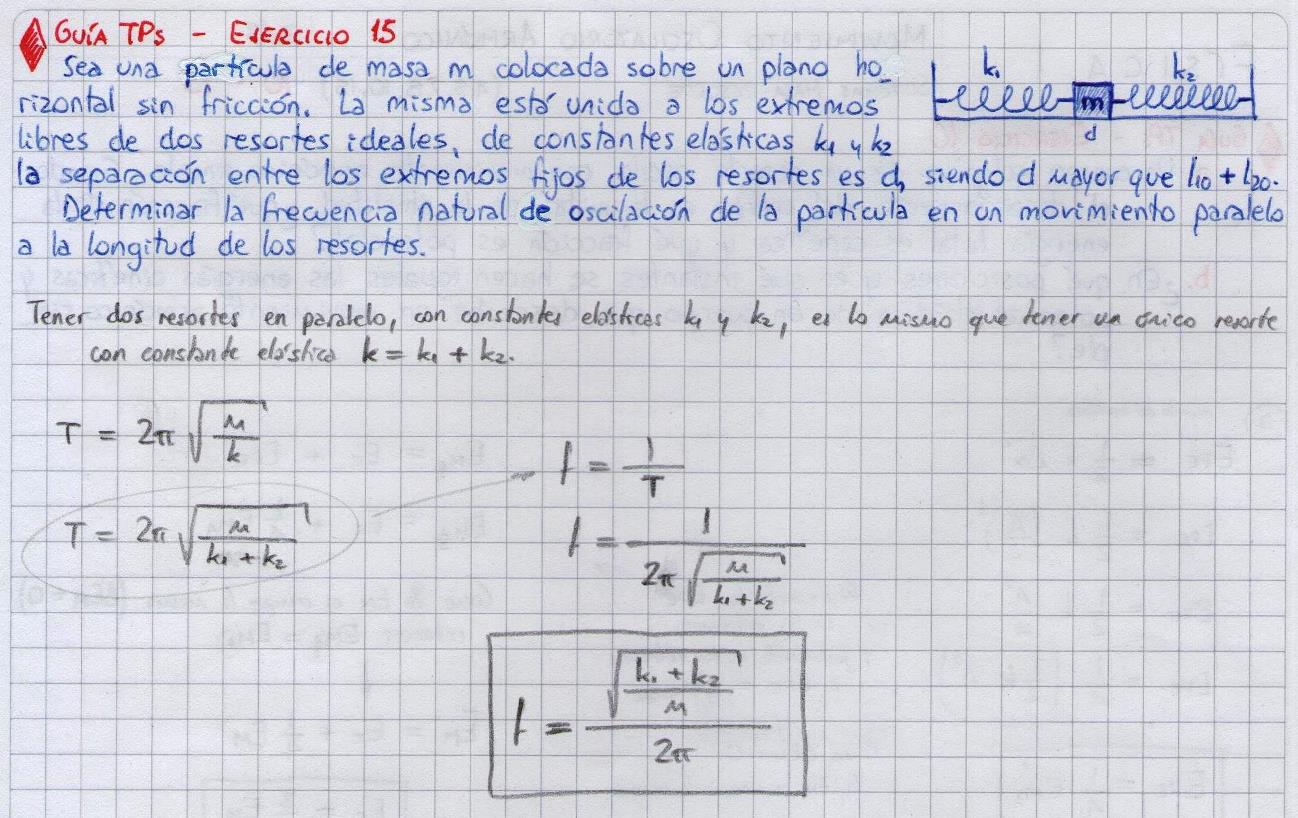 GUÍA TPs - EJERCICIO 15
Sea una partícula de masa m colocada sobre un plano ho_
rizontal sin fricción. La misma está unida a los extremos
libres de dos resortes ideales, de constantes elásticas k₁ y k₂
la separación entre los extremos fijos de los resortes es d, siendo d mayor que l₁₀ + l₂₀.
Determinar la frecuencia natural de oscilación de la partícula en un movimiento paralelo
a la longitud de los resortes.
k₁ k₂
m
d
Tener dos resortes en paralelo, con constantes elásticas k₁ y k₂, es lo mismo que tener un único resorte
con constante elástica k = k₁ + k₂.
T = 2π √(m/k)
T = 2π √(m/(k₁ + k₂))
f = 1/T
f = 1/(2π √(m/(k₁ + k₂)))
f = √((k₁ + k₂)/m)/(2π)